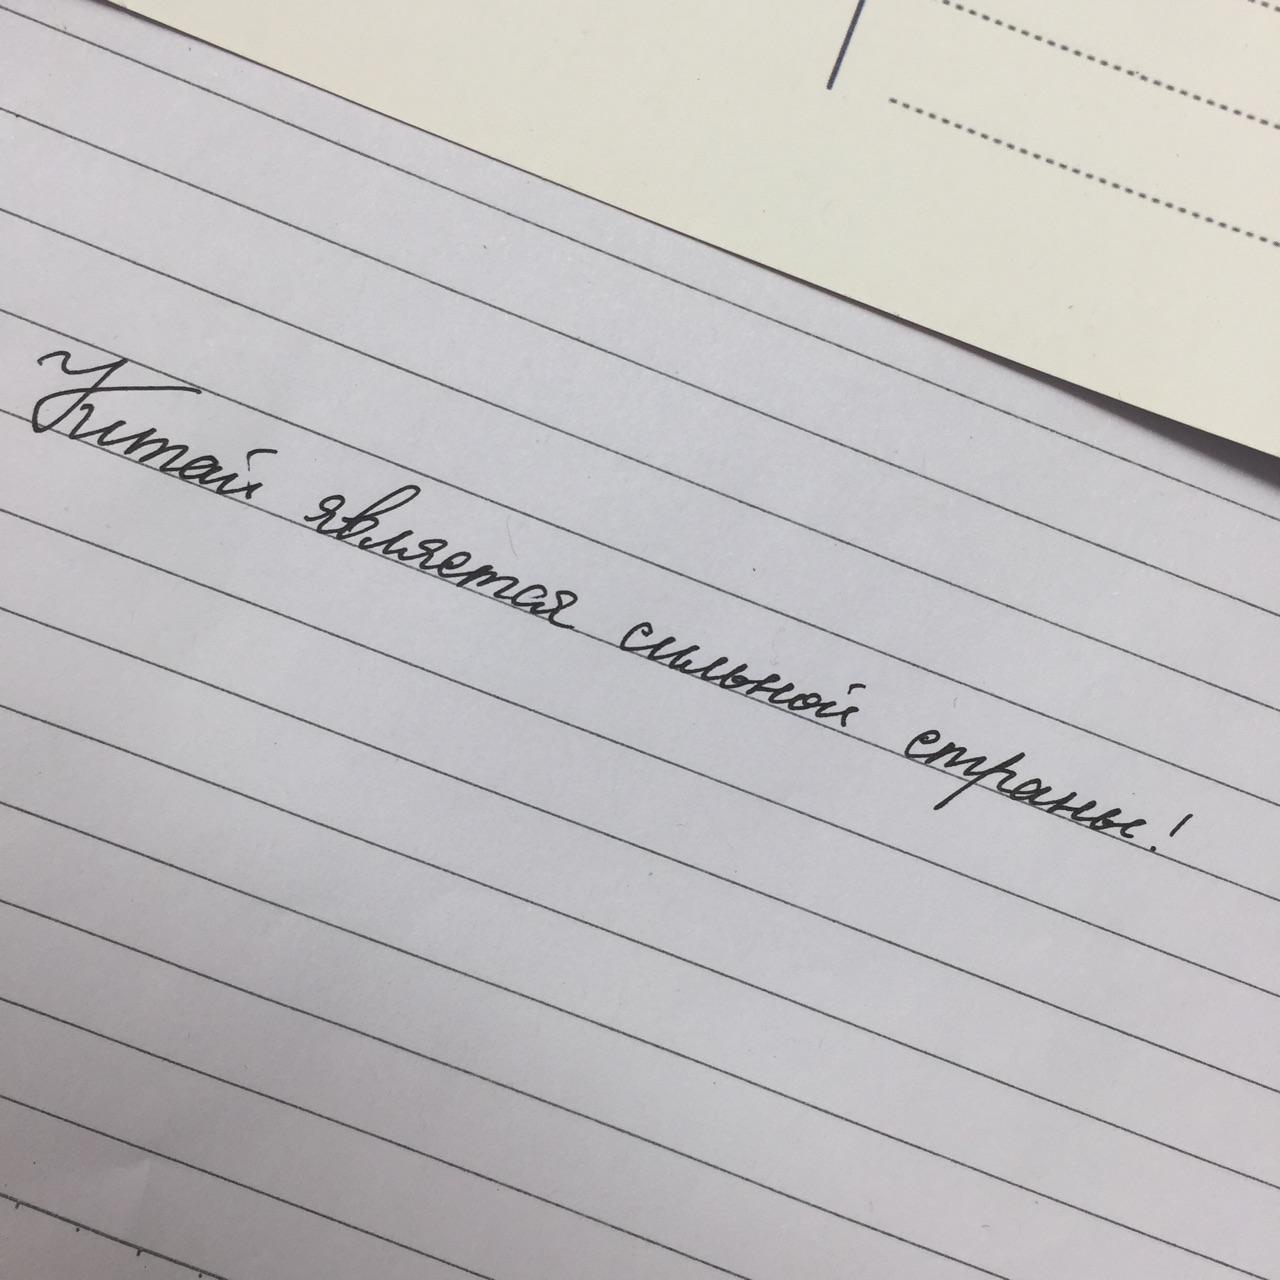 Китай является сильной страны!